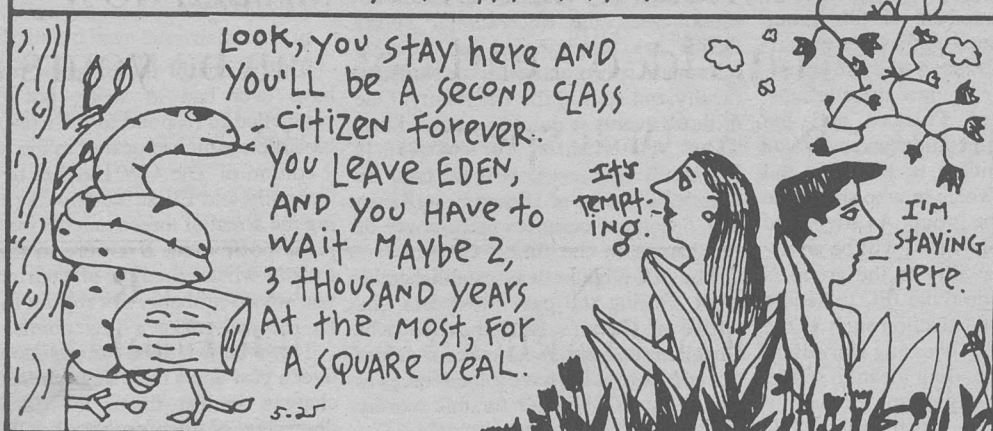 LOOK, YOU STAY HERE AND
YOU'LL BE A SECOND CLASS
CITIZEN FOREVER.
YOU LEAVE EDEN,
AND YOU HAVE TO
WAIT MAYBE 2,
3 THOUSAND YEARS
AT THE MOST, FOR
A SQUARE DEAL.
5.25
IT'S
TEMPT-
ING.
I'M
STAYING
HERE.